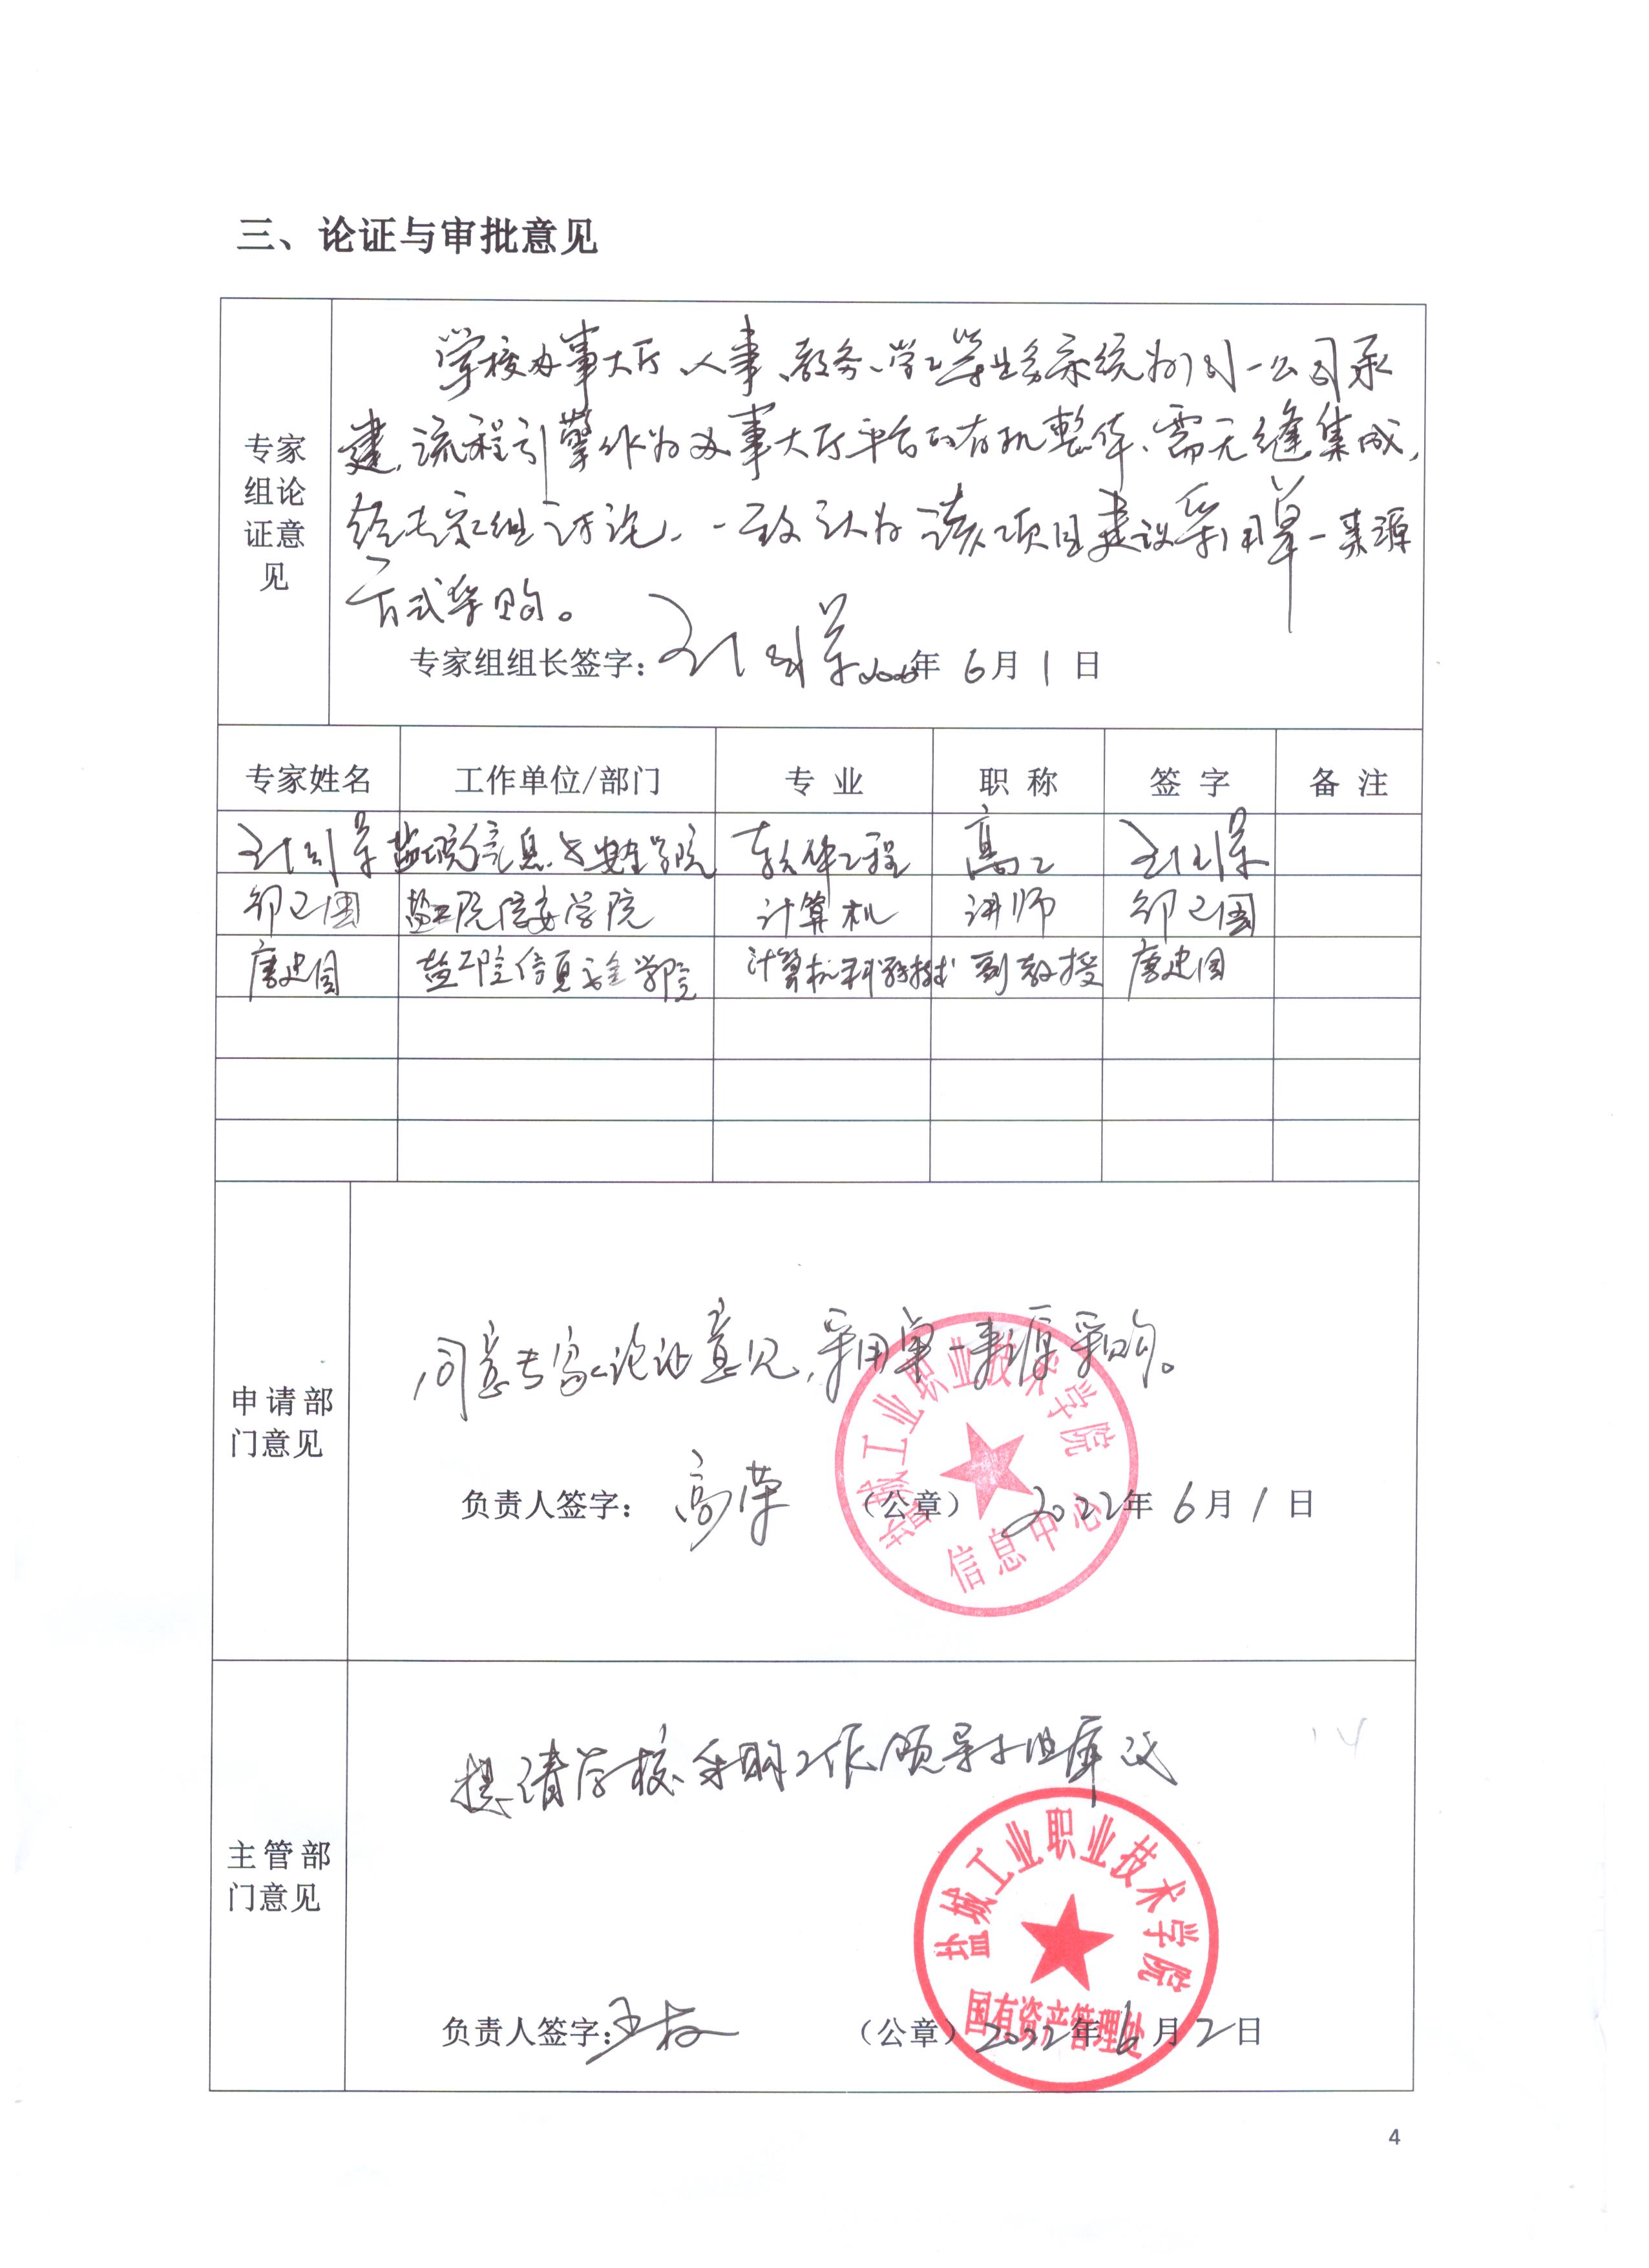 三、论证与审批意见
专家
组论
证意
见
学校办事大厅、人事、教务、学工等业务系统为同一公司承
建,流程引擎作为办事大厅平台的有机整体、需无缝集成,
经专家组讨论,一致认为该项目建议采用单一来源
方式采购。
专家组组长签字: 年 6月1日
专家姓名 工作单位/部门 专 业 职 称 签 字 备 注
盐工院信息与安全学院 软件工程 高工
盐工院信安学院 计算机 讲师
唐建国 盐工院信息安全学院 计算机科学与技术 副教授 唐建国
申请部
门意见
同意专家论证意见,采用单一来源采购。
负责人签字: 高荣 (公章) 2022年 6月1日
盐城工业职业技术学院
信息中心
主管部
门意见
提请学校采购工作领导小组审议
负责人签字: (公章) 2022年6月2日
盐城工业职业技术学院
国有资产管理处
4